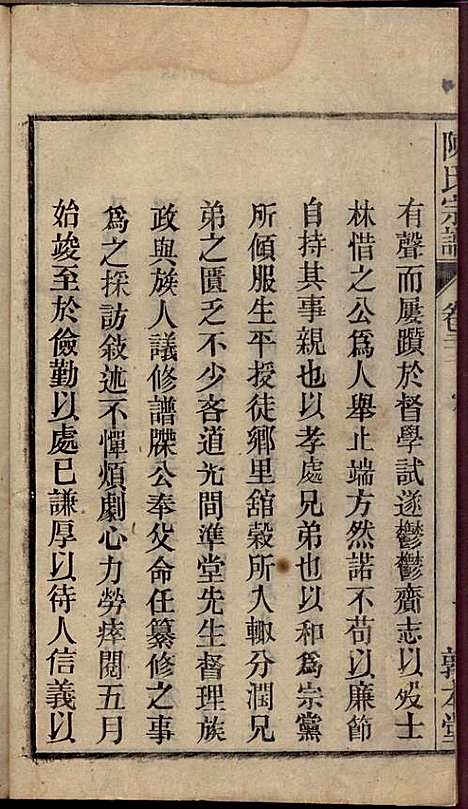 陳氏宗譜 卷三 敦本堂
有聲而屢躓於督學試遂鬱鬱齎志以歿士
林惜之公爲人舉止端方然諾不苟以廉節
自持其事親也以孝處兄弟也以和爲宗黨
所傾服生平授徒鄉里舘穀所入輙分潤兄
弟之匱乏不少吝道光間準堂先生督理族
政與族人議修譜牒公奉父命任纂修之事
爲之採訪敍述不憚煩劇心力勞瘁閱五月
始竣至於儉勤以處已謙厚以待人信義以